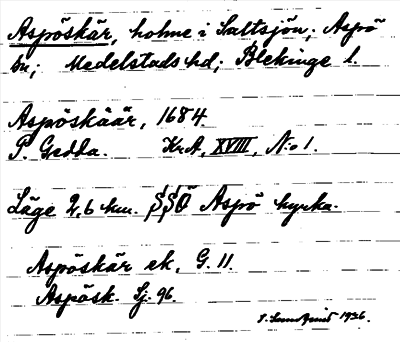 Aspöskär, holme i Saltsjön; Aspö
sn; Medelstads hd; Blekinge l.
Aspöskäär, 1684.
P. Gedda. KrA, XVIII, N:o 1.
Läge 2,6 km. SSÖ Aspö kyrka.
Aspöskär ek. G. 11.
Aspösk. Sj. 96.
1926.